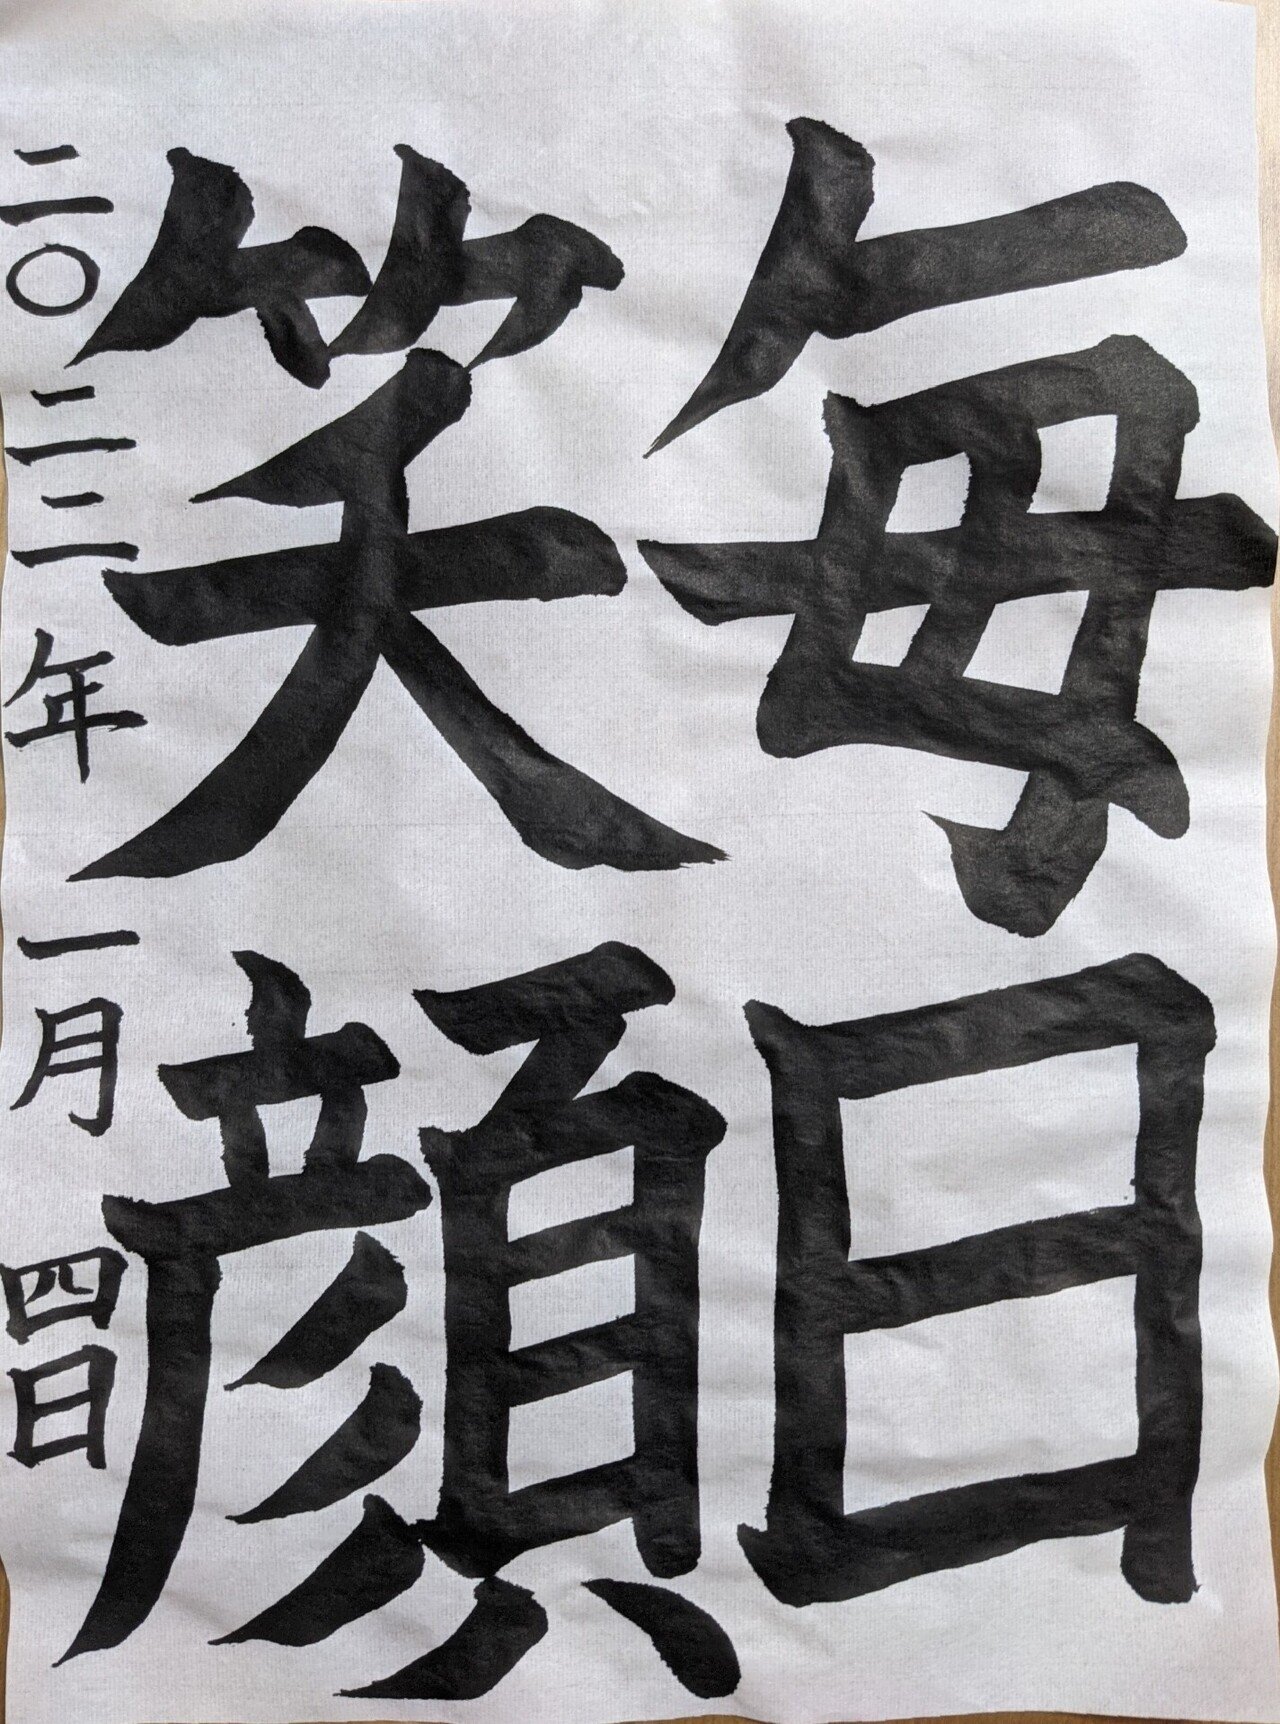 毎日
笑顔
二〇二二年一月四日